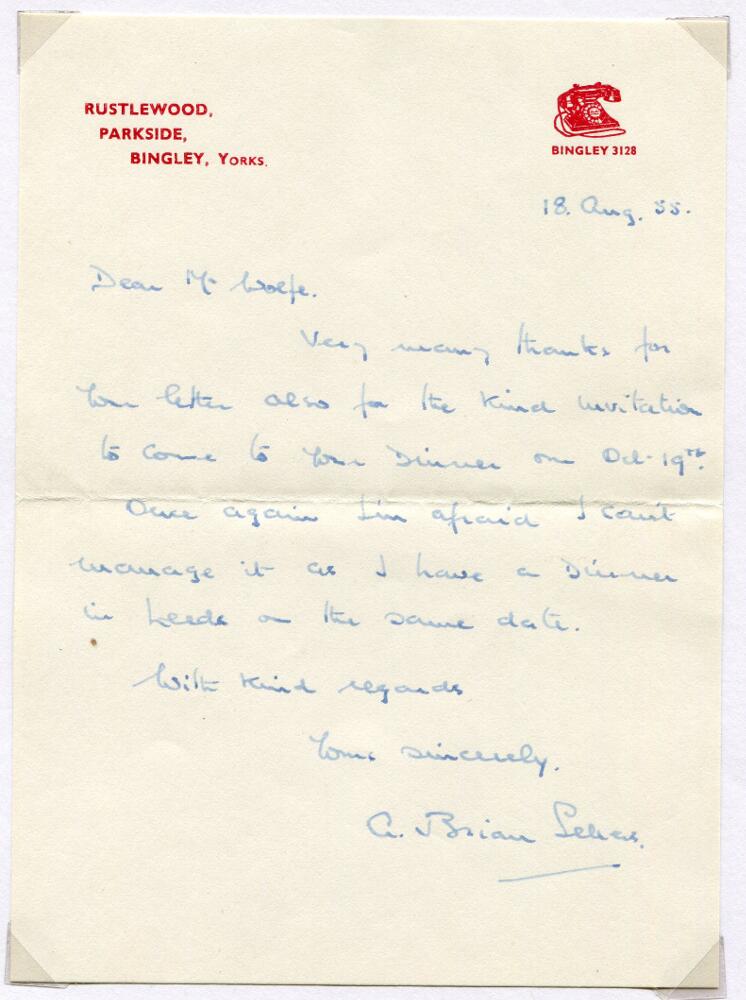 RUSTLEWOOD,
PARKSIDE,
BINGLEY, YORKS.
BINGLEY 3128
18. Aug. 55.
Dear Mr Wolfe.
Very many thanks for
Your letter also for the Kind invitation
to come to Your Dinner on Oct-19th.
Once again I'm afraid I can't
manage it as I have a Dinner
in Leeds on the same date.
With Kind regards
Yours sincerely.
A. Brian Sellers.